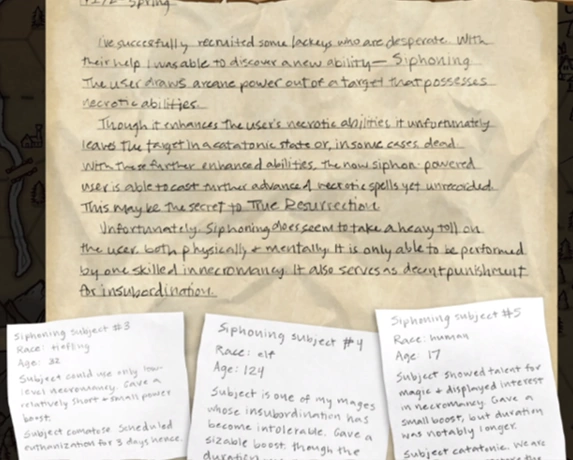 Spring
I've succesfully recruited some lackeys who are desperate. With
their help I was able to discover a new ability— Siphoning
The user draws arcane power out of a target that possesses
necrotic abilities.
Though it enhances the user's necrotic abilities it unfortunately
leaves the target in a catatonic state or, in some cases dead.
With these further enhanced abilities, the now siphon-powered
user is able to cast further advanced necrotic spells yet unrecorded.
This may be the secret to True Resurrection.
Unfortunately, Siphoning does seem to take a heavy toll on
the user, both physically & mentally. It is only able to be performed
by one skilled in necromancy. It also serves as decent punishment
for insubordination.
Siphoning Subject #3
Race: tiefling
Age: 32
Subject could use only low-
level necromancy. Gave a
relatively short & small power
boost.
Subject comatose. Scheduled
euthanization for 3 days hence.
Siphoning Subject #4
Race: elf
Age: 124
Subject is one of my mages
whose insubordination has
become intolerable. Gave a
sizable boost, though the
duration
Siphoning Subject #5
Race: human
Age: 17
Subject showed talent for
magic & displayed interest
in necromancy. Gave a
small boost, but duration
was notably longer.
Subject catatonic. We are
the